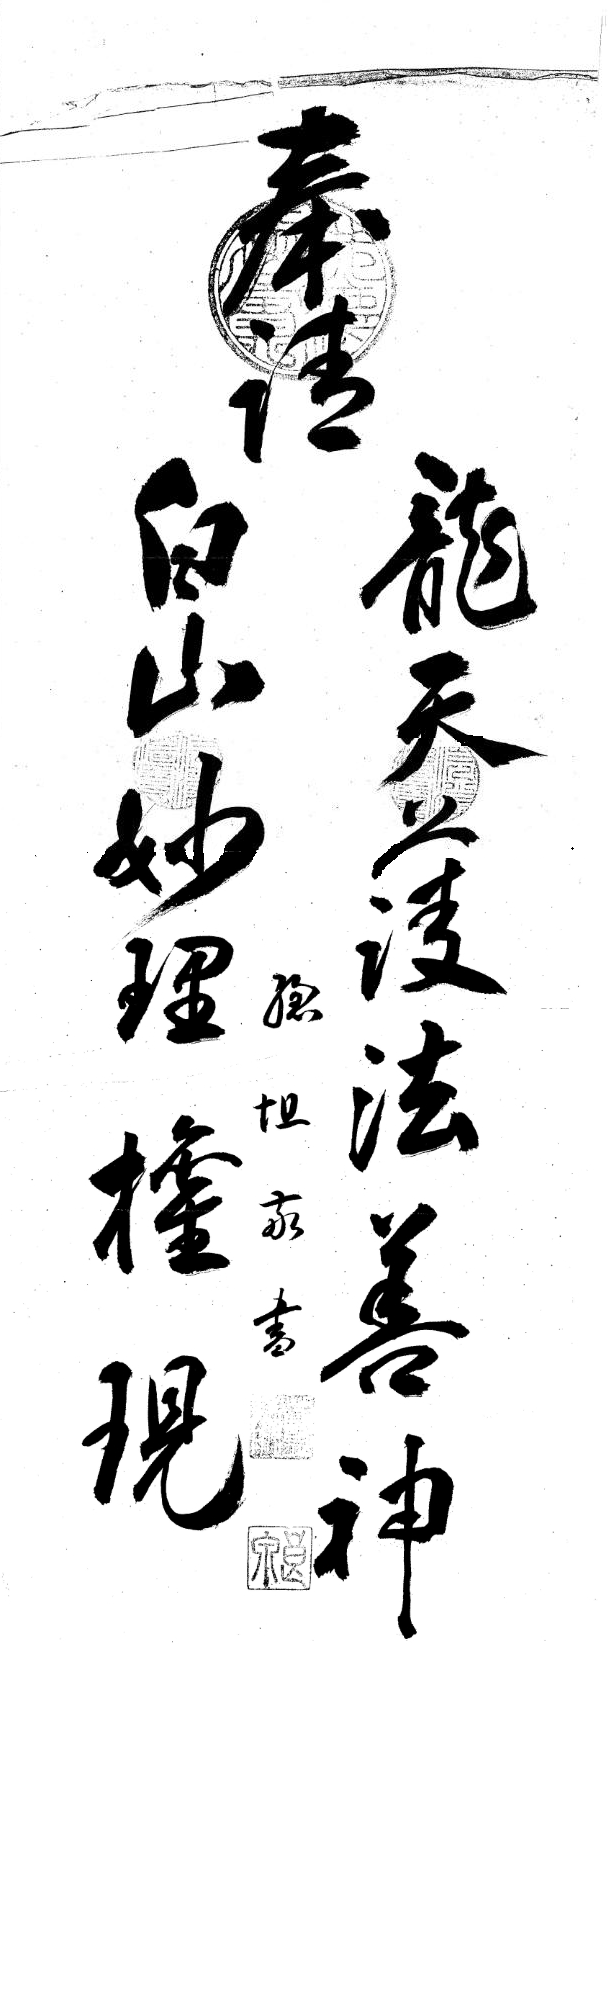 奉請
龍天護法善神
白山妙理權現
坦敬書